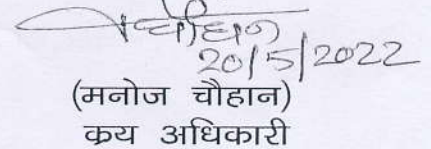 20/5/2022
(मनोज चौहान)
क्रय अधिकारी